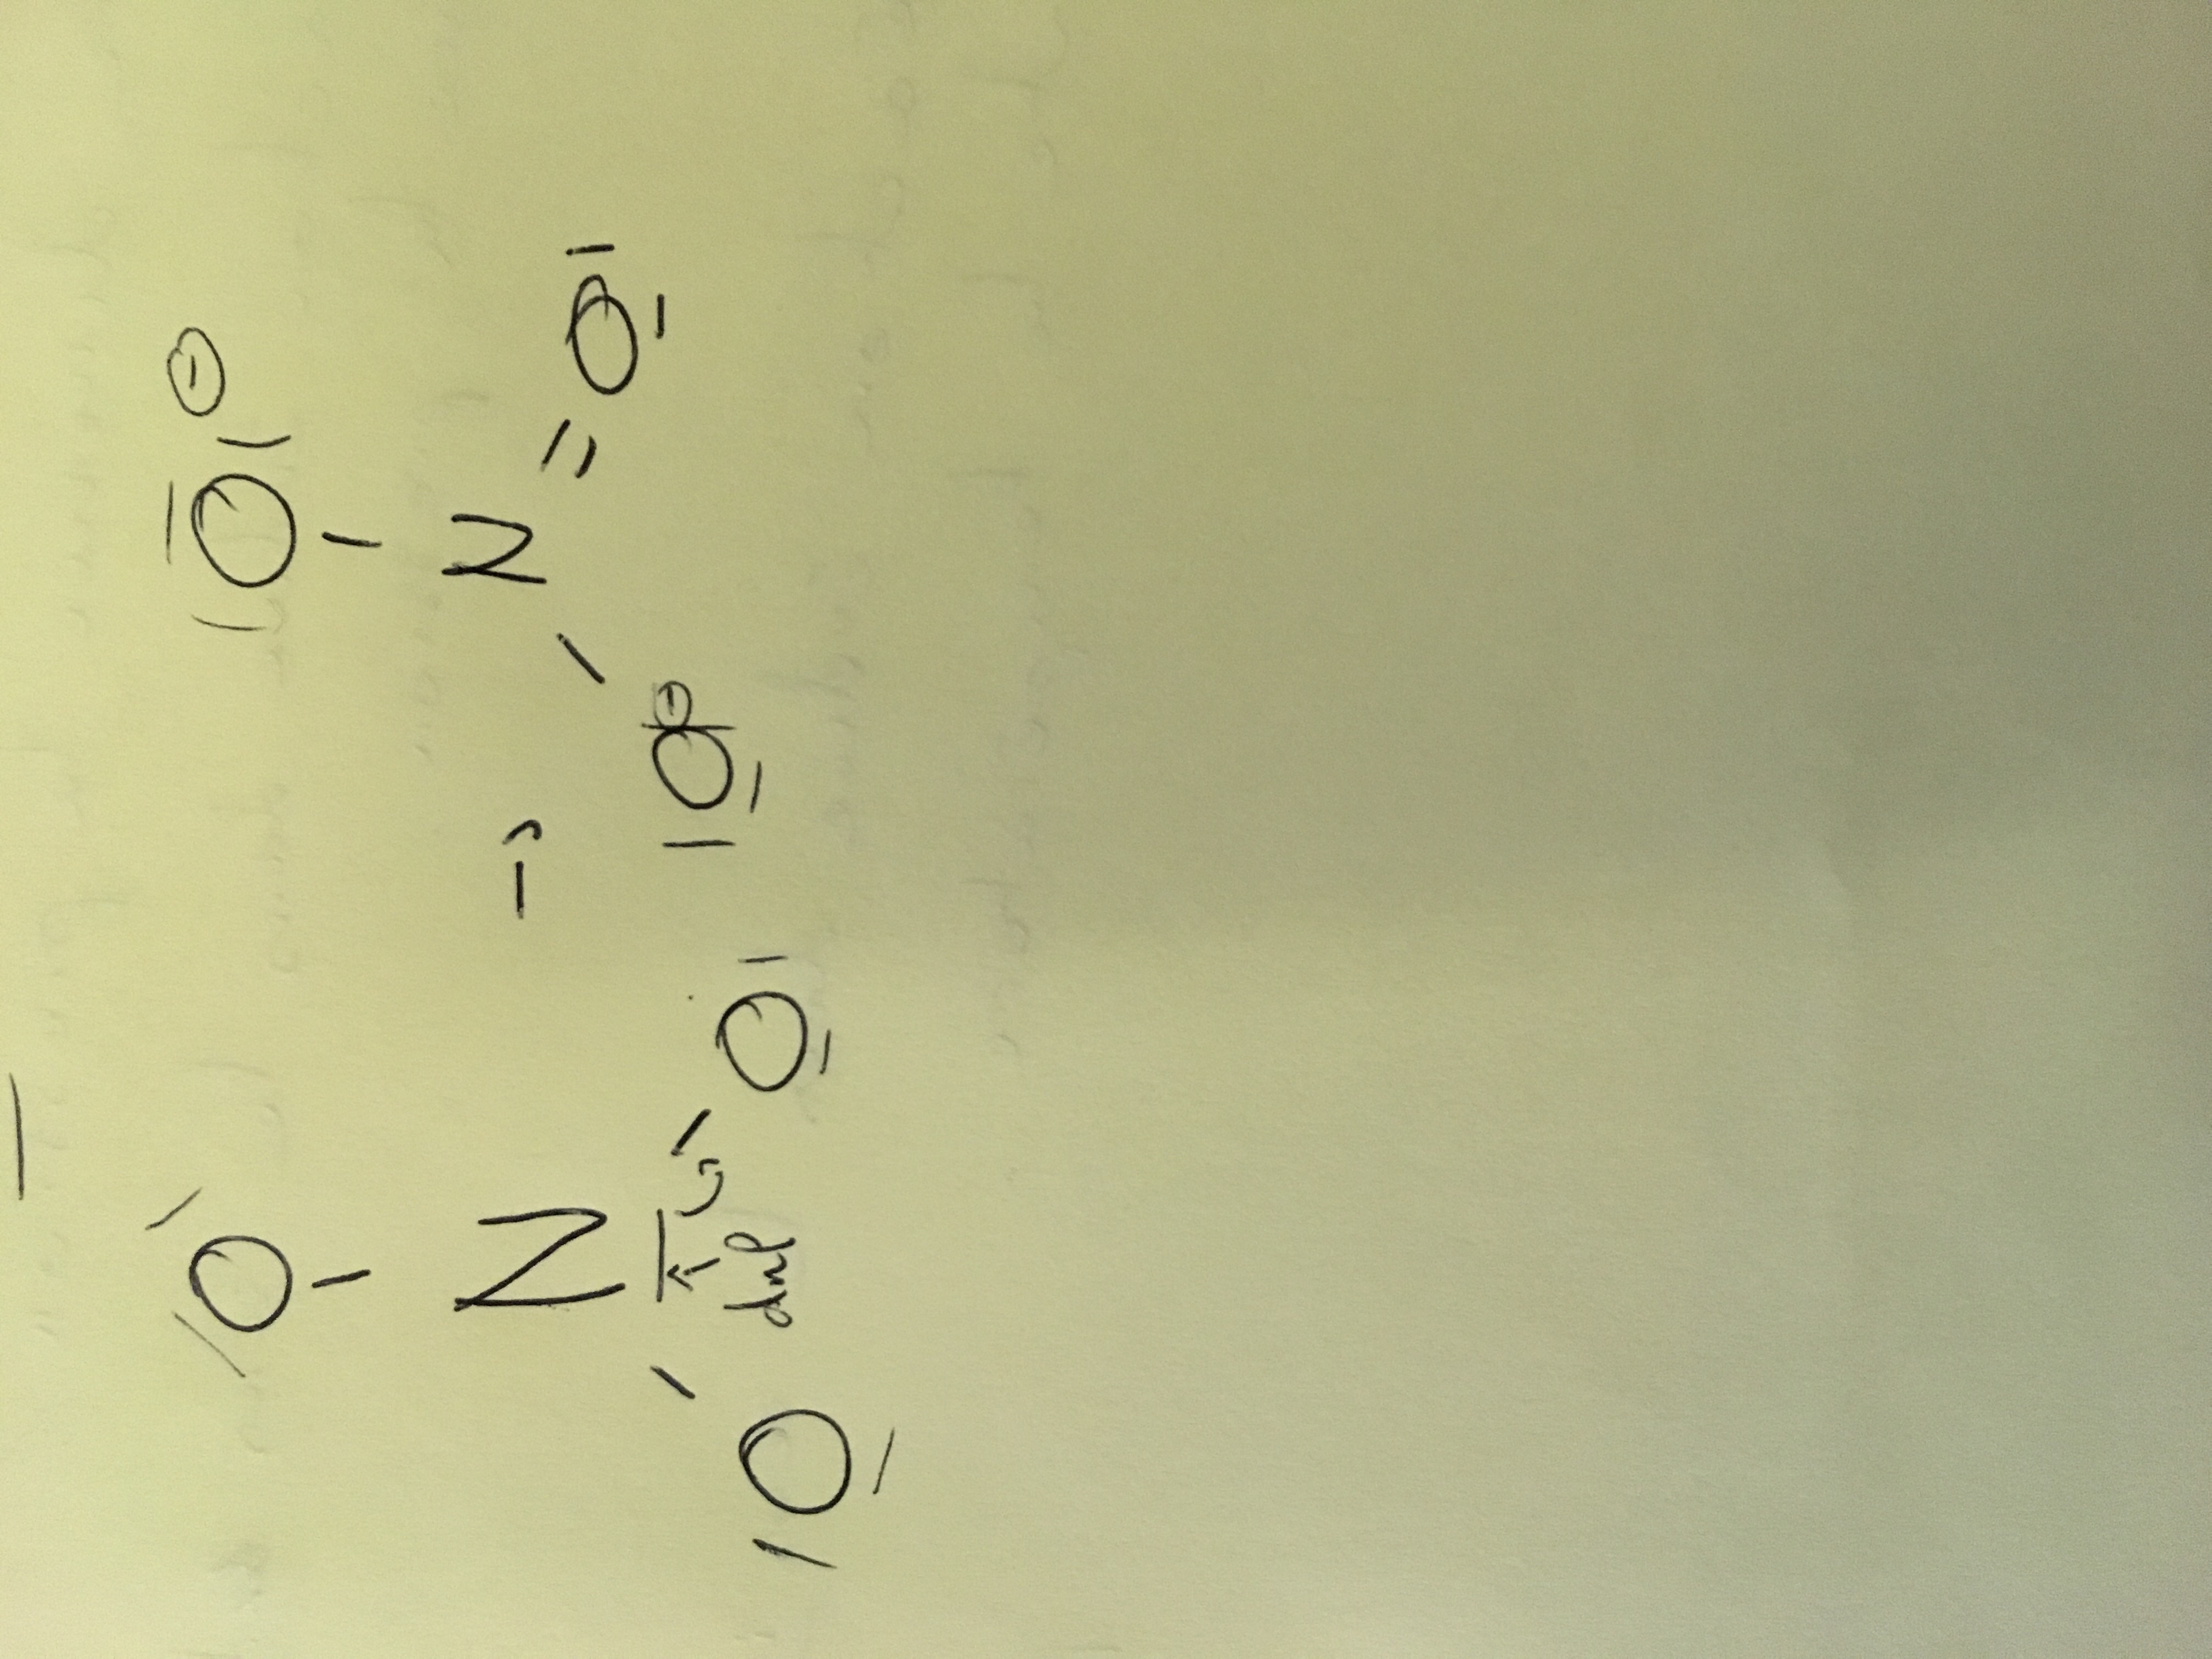 O O ⊖
N → N
O dnl O O ⊖ O